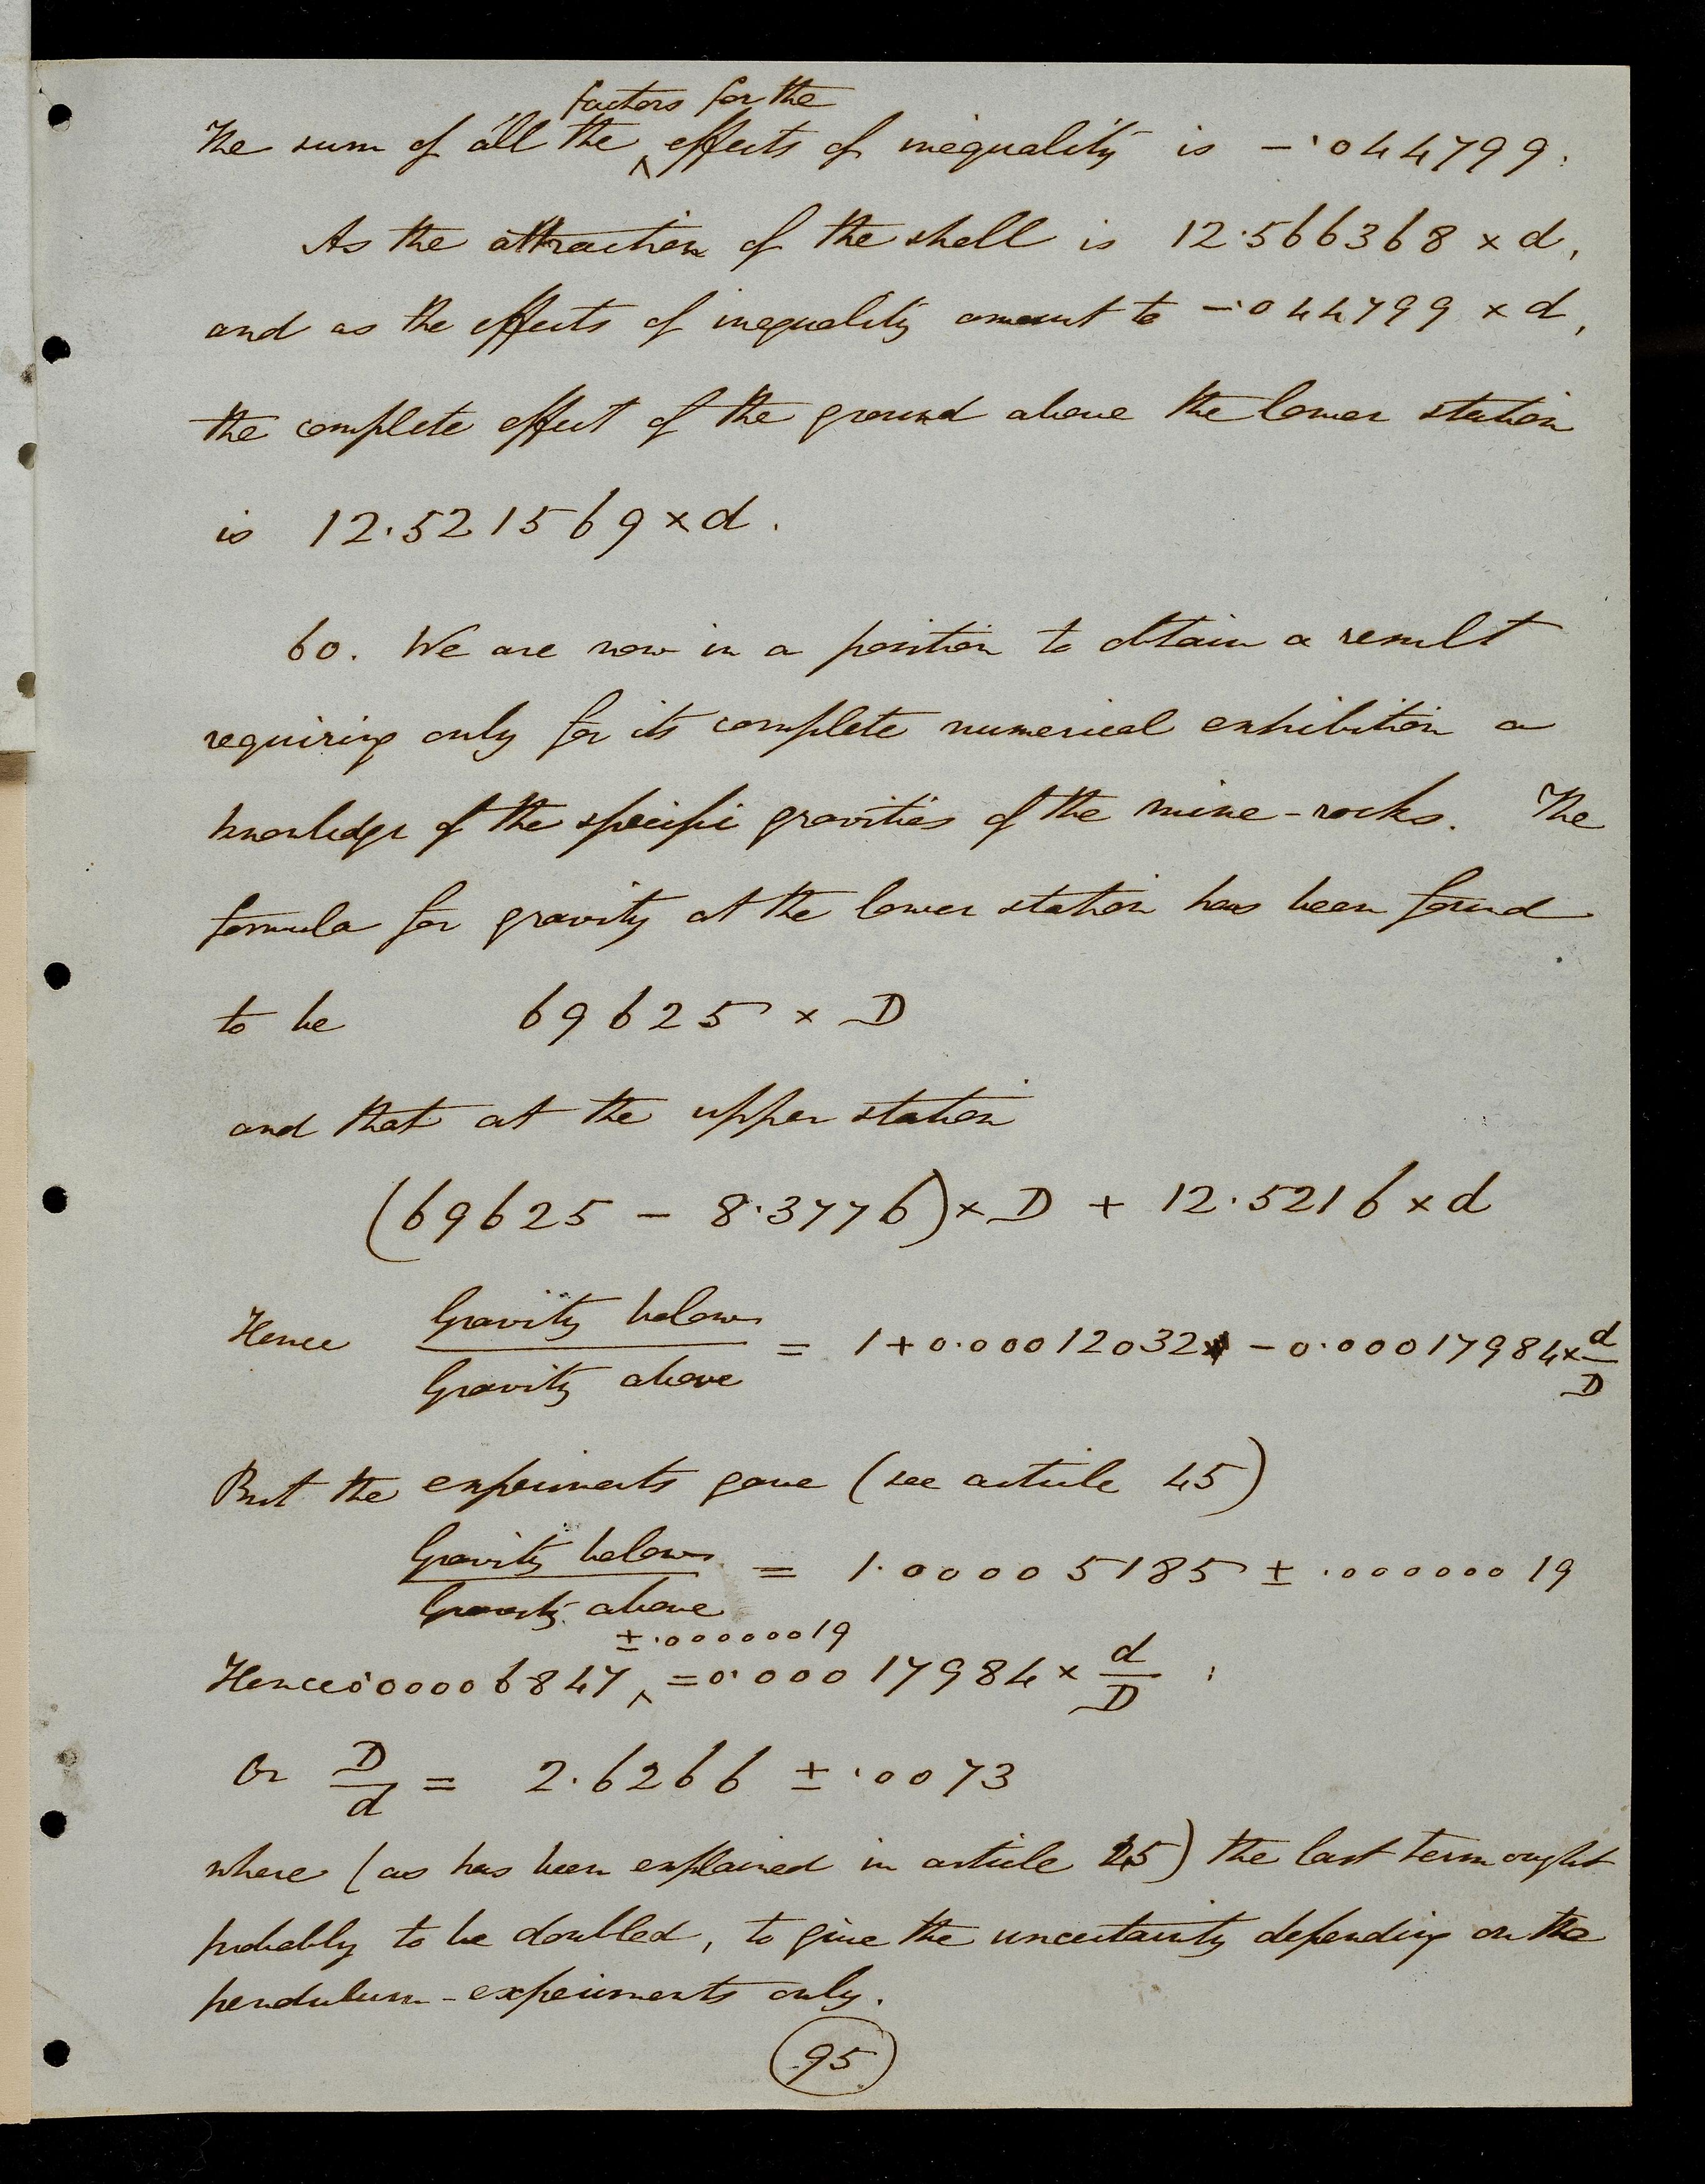 factors for the
The sum of all the ‸ effects of inequality is – ·044799.
As the attraction of the shell is 12·566368 × d,
and as the effects of inequality amount to – ·044799 × d,
the complete effect of the ground above the lower station
is 12.521569 × d.
60. We are now in a position to obtain a result
requiring only for its complete numerical exhibition a
knowledge of the specific gravities of the mine-rocks. The
formula for gravity at the lower station has been found
to be 69625 × D
and that at the upper station
(69625 – 8·3776) × D + 12·5216 × d
Hence Gravity below / Gravity above = 1 + 0·00012032 – 0·00017984 × d/D
But the experiments gave (see article 45)
Gravity below / Gravity above = 1·00005185 ± ·00000019
± ·00000019
Hence ·00006847 ‸ = 0·00017984 × d/D ;
Or D/d = 2.6266 ± ·0073
where (as has been explained in article 45) the last term ought
probably to be doubled, to give the uncertainty depending on the
pendulum-experiments only.
95